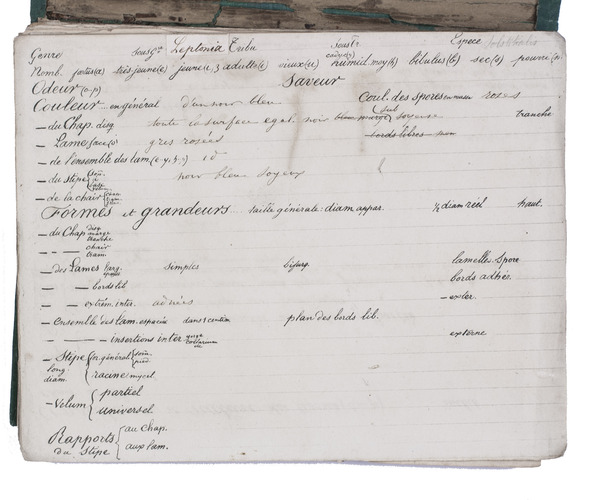 Genre sousg. Leptonia Tribu sousTr. Espece
Nomb. fortes(a) très jeune(e) jeune(u) 3 adulte(e) vieux(ie) humid. moy(h) bibulus(b) sec(s) pourri
Odeur (o-p) Saveur
Couleur en général d'un noir bleu Coul. des spores en masse roses
– du Chap. disq. toute la surface egal. noir bleu marge sub soyeuse tranche
– Lame face(s) gris roséeé bords libres
– de l'ensemble des lam. id
– du stipe noir bleu soyeux
– de la chair
Formes et grandeurs taille générale: diam. appar. ½ diam réel haut.
– du Chap. disq. marge tranche
– – – chair lam.
– des Lames larg. simples bifurq. lamelles. Spore
– – bords lib. bords adhér.
– – extrém. inter. adnées – exter.
– ensemble des lam. espacées dans 1 centim plan des bords lib.
– – – – insertions inter externe
– Stipe en général
long. diam. racine mycel.
– Velum partiel
universel
Rapports au Chap.
du Stipe aux lam.